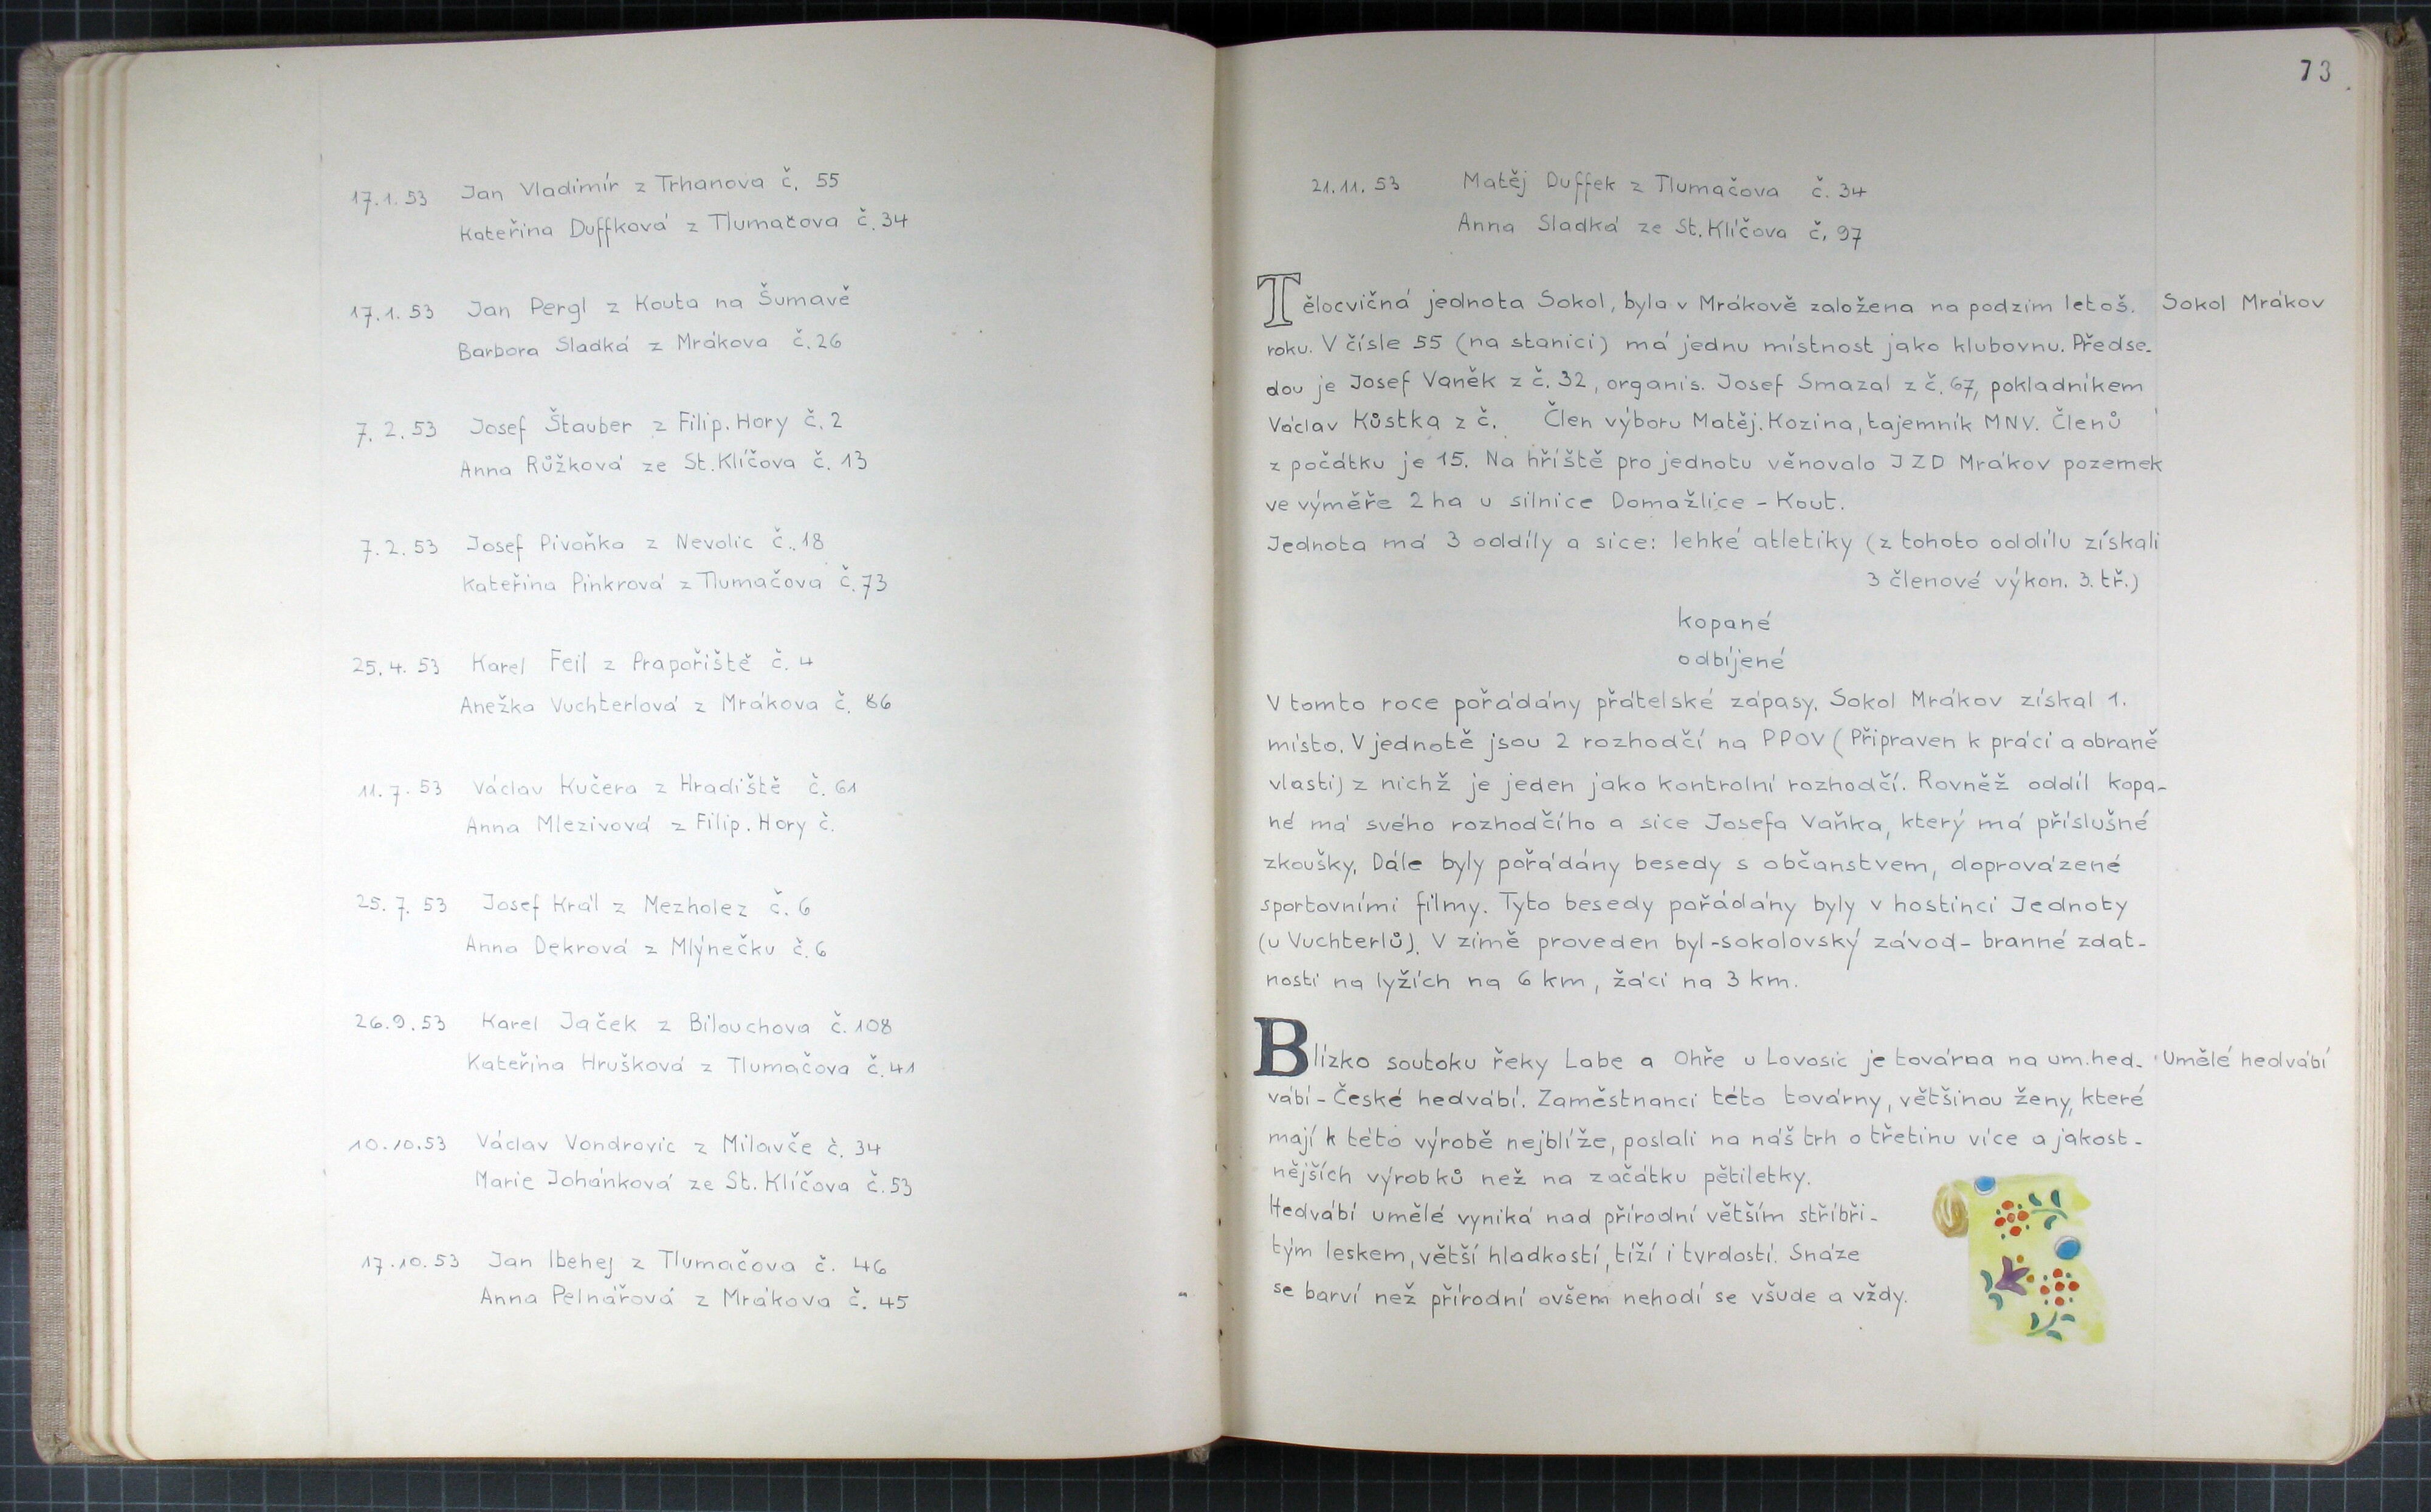 17.1.53 Jan Vladimír z Trhanova č. 55
Kateřina Duffková z Tlumačova č. 34
17.1.53 Jan Pergl z Kouta na Šumavě
Barbora Sladká z Mrákova č. 26
7.2.53 Josef Štauber z Filip. Hory č. 2
Anna Růžková ze St. Klíčova č. 13
7.2.53 Josef Pivoňka z Nevolic č. 18
Kateřina Pinkrová z Tlumačova č. 73
25.4.53 Karel Feil z Prapořiště č. 4
Anežka Vuchterlová z Mrákova č. 86
11.7.53 Václav Kučera z Hradiště č. 61
Anna Mlezivová z Filip. Hory č.
25.7.53 Josef Král z Mezholez č. 6
Anna Dekrová z Mlýnečku č. 6
26.9.53 Karel Jaček z Bilouchova č. 108
Kateřina Hrušková z Tlumačova č. 41
10.10.53 Václav Vondrovic z Milavče č. 34
Marie Johánková ze St. Klíčova č. 53
17.10.53 Jan Ibehej z Tlumačova č. 46
Anna Pelnářová z Mrákova č. 45
73
21.11.53 Matěj Duffek z Tlumačova č. 34
Anna Sladká ze St. Klíčova č. 97
Tělocvičná jednota Sokol, byla v Mrákově založena na podzim letoš. Sokol Mrákov
roku. V čísle 55 (na stanici) má jednu místnost jako klubovnu. Předse-
dou je Josef Vaněk z č. 32, organis. Josef Smazal z č. 67, pokladníkem
Václav Kůstka z č. Člen výboru Matěj. Kozina, tajemník MNV. Členů
z počátku je 15. Na hřiště pro jednotu věnovalo JZD Mrákov pozemek
ve výměře 2 ha u silnice Domažlice - Kout.
Jednota má 3 oddíly a sice: lehké atletiky (z tohoto oddílu získali
3 členové výkon. 3. tř.)
kopané
odbíjené
V tomto roce pořádány přátelské zápasy. Sokol Mrákov získal 1.
místo. V jednotě jsou 2 rozhodčí na PPOV (Připraven k práci a obraně
vlasti) z nichž je jeden jako kontrolní rozhodčí. Rovněž oddíl kopa-
né má svého rozhodčího a sice Josefa Vaňka, který má příslušné
zkoušky. Dále byly pořádány besedy s občanstvem, doprovázené
sportovními filmy. Tyto besedy pořádány byly v hostinci Jednoty
(u Vuchterlů). V zimě proveden byl - sokolovský závod - branné zdat-
nosti na lyžích na 6 km, žáci na 3 km.
Blízko soutoku řeky Labe a Ohře u Lovosic je továrna na um. hed- Umělé hedvábí
vábí - České hedvábí. Zaměstnanci této továrny, většinou ženy, které
mají k této výrobě nejblíže, poslali na náš trh o třetinu více a jakost-
nějších výrobků než na začátku pětiletky.
Hedvábí umělé vyniká nad přírodní větším stříbři-
tým leskem, větší hladkostí, tíží i tvrdostí. Snáze
se barví než přírodní ovšem nehodí se všude a vždy.